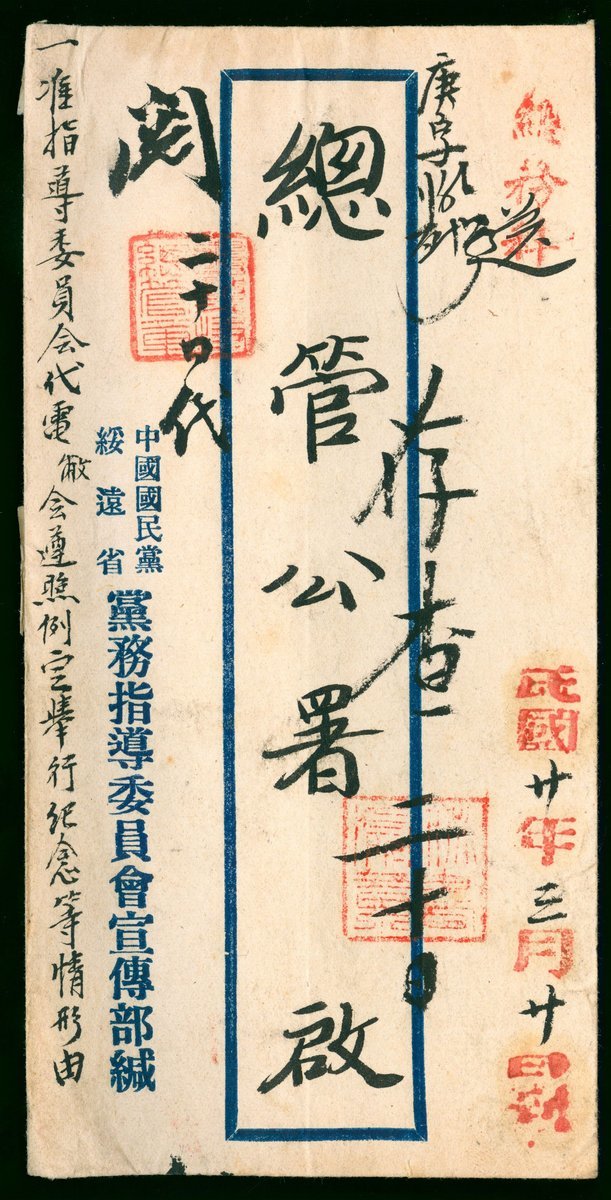 總務科
送
民國廿年三月廿日到
存查 二十日
總管公署 啟
閱
二十日代
中國國民黨
綏遠省
黨務指導委員會宣傳部緘
一准指導委員会代電敝会遵照例定舉行紀念等情形由